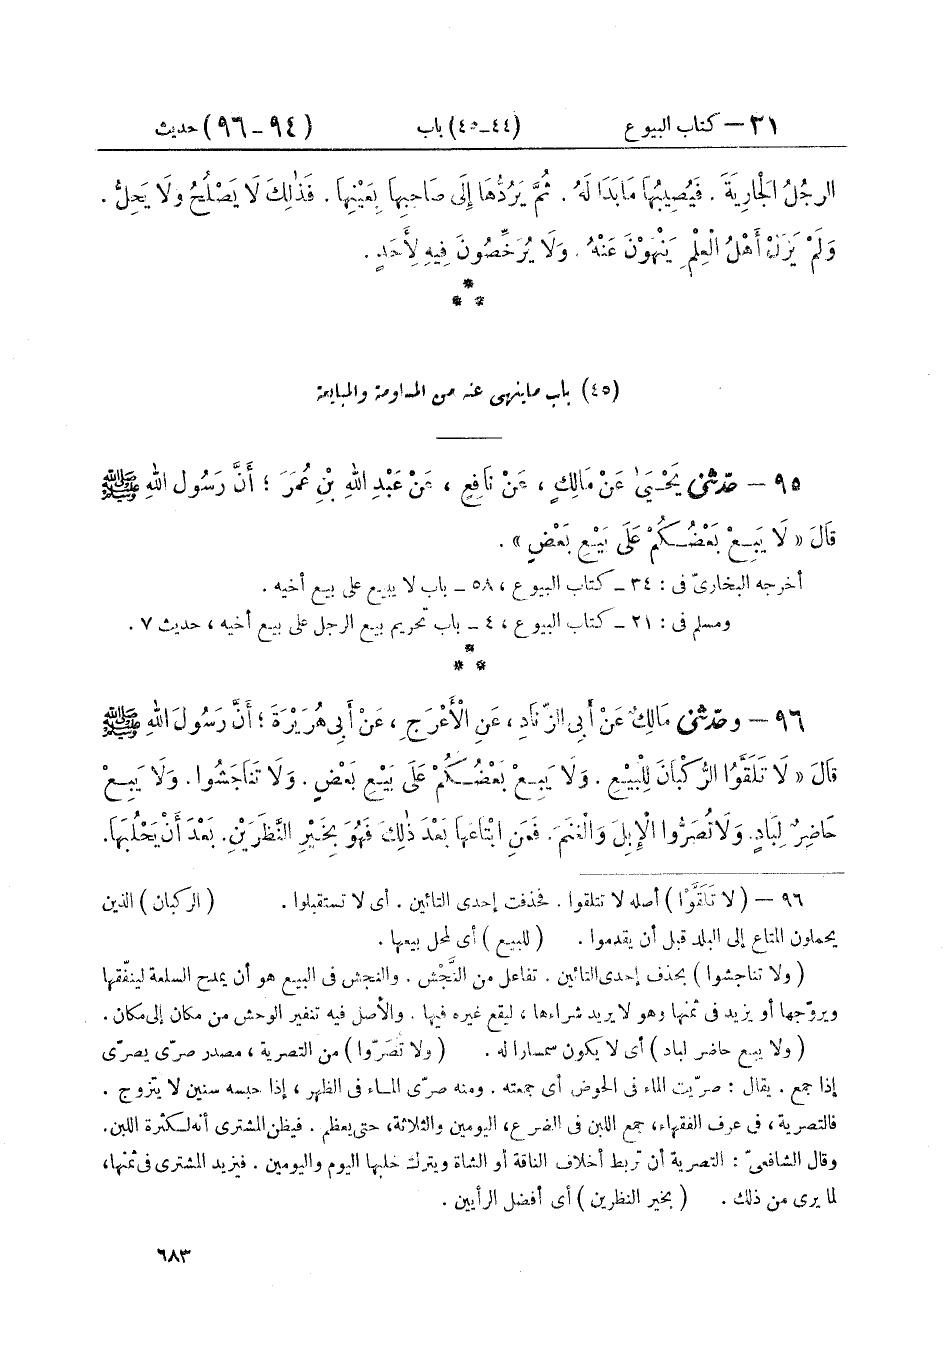 ٣١ – كتاب البيوع (٤٤-٤٥) باب (٩٤-٩٦) حديث
الرجُلُ الْجَارِيَةَ . فَيُصِيبُهَا مَا بَدَا لَهُ . ثُمَّ يَرُدُّهَا إِلَى صَاحِبِهَا بِعَيْنِهَا . فَذٰلِكَ لَا يَصْلُحُ وَلَا يَحِلُّ .
وَلَمْ يَزَلْ أَهْلُ الْعِلْمِ يَنْهَوْنَ عَنْهُ . وَلَا يُرَخِّصُونَ فِيهِ لِأَحَدٍ .
*
* *
(٤٥) باب ما ينهى عنه من المساومة والمبايعة
٩٥ – حدّثنى يَحْيَىٰ عَنْ مَالِكٍ ، عَنْ نَافِعٍ ، عَنْ عَبْدِ اللهِ بْنِ عُمَرَ ؛ أَنَّ رَسُولَ اللهِ ﷺ
قَالَ « لَا يَبِعْ بَعْضُكُمْ عَلَى بَيْعِ بَعْضٍ » .
أخرجه البخارىّ فى : ٣٤ – كتاب البيوع ، ٥٨ – باب لا يبيع على بيع أخيه .
ومسلم فى : ٢١ – كتاب البيوع ، ٤ – باب تحريم بيع الرجل على بيع أخيه ، حديث ٧ .
*
* *
٩٦ – وحدّثنى مَالِكٌ عَنْ أَبِى الزِّنَادِ ، عَنِ الْأَعْرَجِ ، عَنْ أَبِى هُرَيْرَةَ ؛ أَنَّ رَسُولَ اللهِ ﷺ
قَالَ « لَا تَلَقَّوُا الرُّكْبَانَ لِلْبَيْعِ . وَلَا يَبِعْ بَعْضُكُمْ عَلَى بَيْعِ بَعْضٍ . وَلَا تَنَاجَشُوا . وَلَا يَبِعْ
حَاضِرٌ لِبَادٍ . وَلَا تُصَرُّوا الْإِبِلَ وَالْغَنَمَ . فَمَنِ ابْتَاعَهَا بَعْدَ ذٰلِكَ فَهُوَ بِخَيْرِ النَّظَرَيْنِ . بَعْدَ أَنْ يَحْلُبَهَا .
٩٦ – ( لا تَلَقَّوْا ) أصله لا تتلقوا . فحذفت إحدى التائين . أى لا تستقبلوا . ( الركبان ) الذين
يحملون المتاع إلى البلد قبل أن يقدموا . ( للبيع ) أى لمحل بيعها .
( ولا تناجشوا ) بحذف إحدى التائين . تفاعل من النَّجْش . والنجش فى البيع هو أن يمدح السلعة لينفّقها
ويروّجها أو يزيد فى ثمنها وهو لا يريد شراءها ، ليقع غيره فيها . والأصل فيه تنفير الوحش من مكان إلى مكان .
( ولا يبع حاضر لباد ) أى لا يكون سمسارا له . ( ولا تُصَرّوا ) من التصرية ، مصدر صرّى يصرّى
إذا جمع . يقال : صرّيت الماء فى الحوض أى جمعته . ومنه صرّى المـاء فى الظهر ، إذا حبسه سنين لا يتزوج .
فالتصرية ، فى عرف الفقهاء ، جمع اللبن فى الضرع ، اليومين والثلاثة ، حتى يعظم . فيظن المشترى أنه لكثرة اللبن .
وقال الشافعىّ : التصرية أن تربط أخلاف الناقة أو الشاة ويترك حلبها اليوم واليومين . فيزيد المشترى فى ثمنها ،
لما يرى من ذلك . ( بخير النظرين ) أى أفضل الرأيين .
٦٨٣